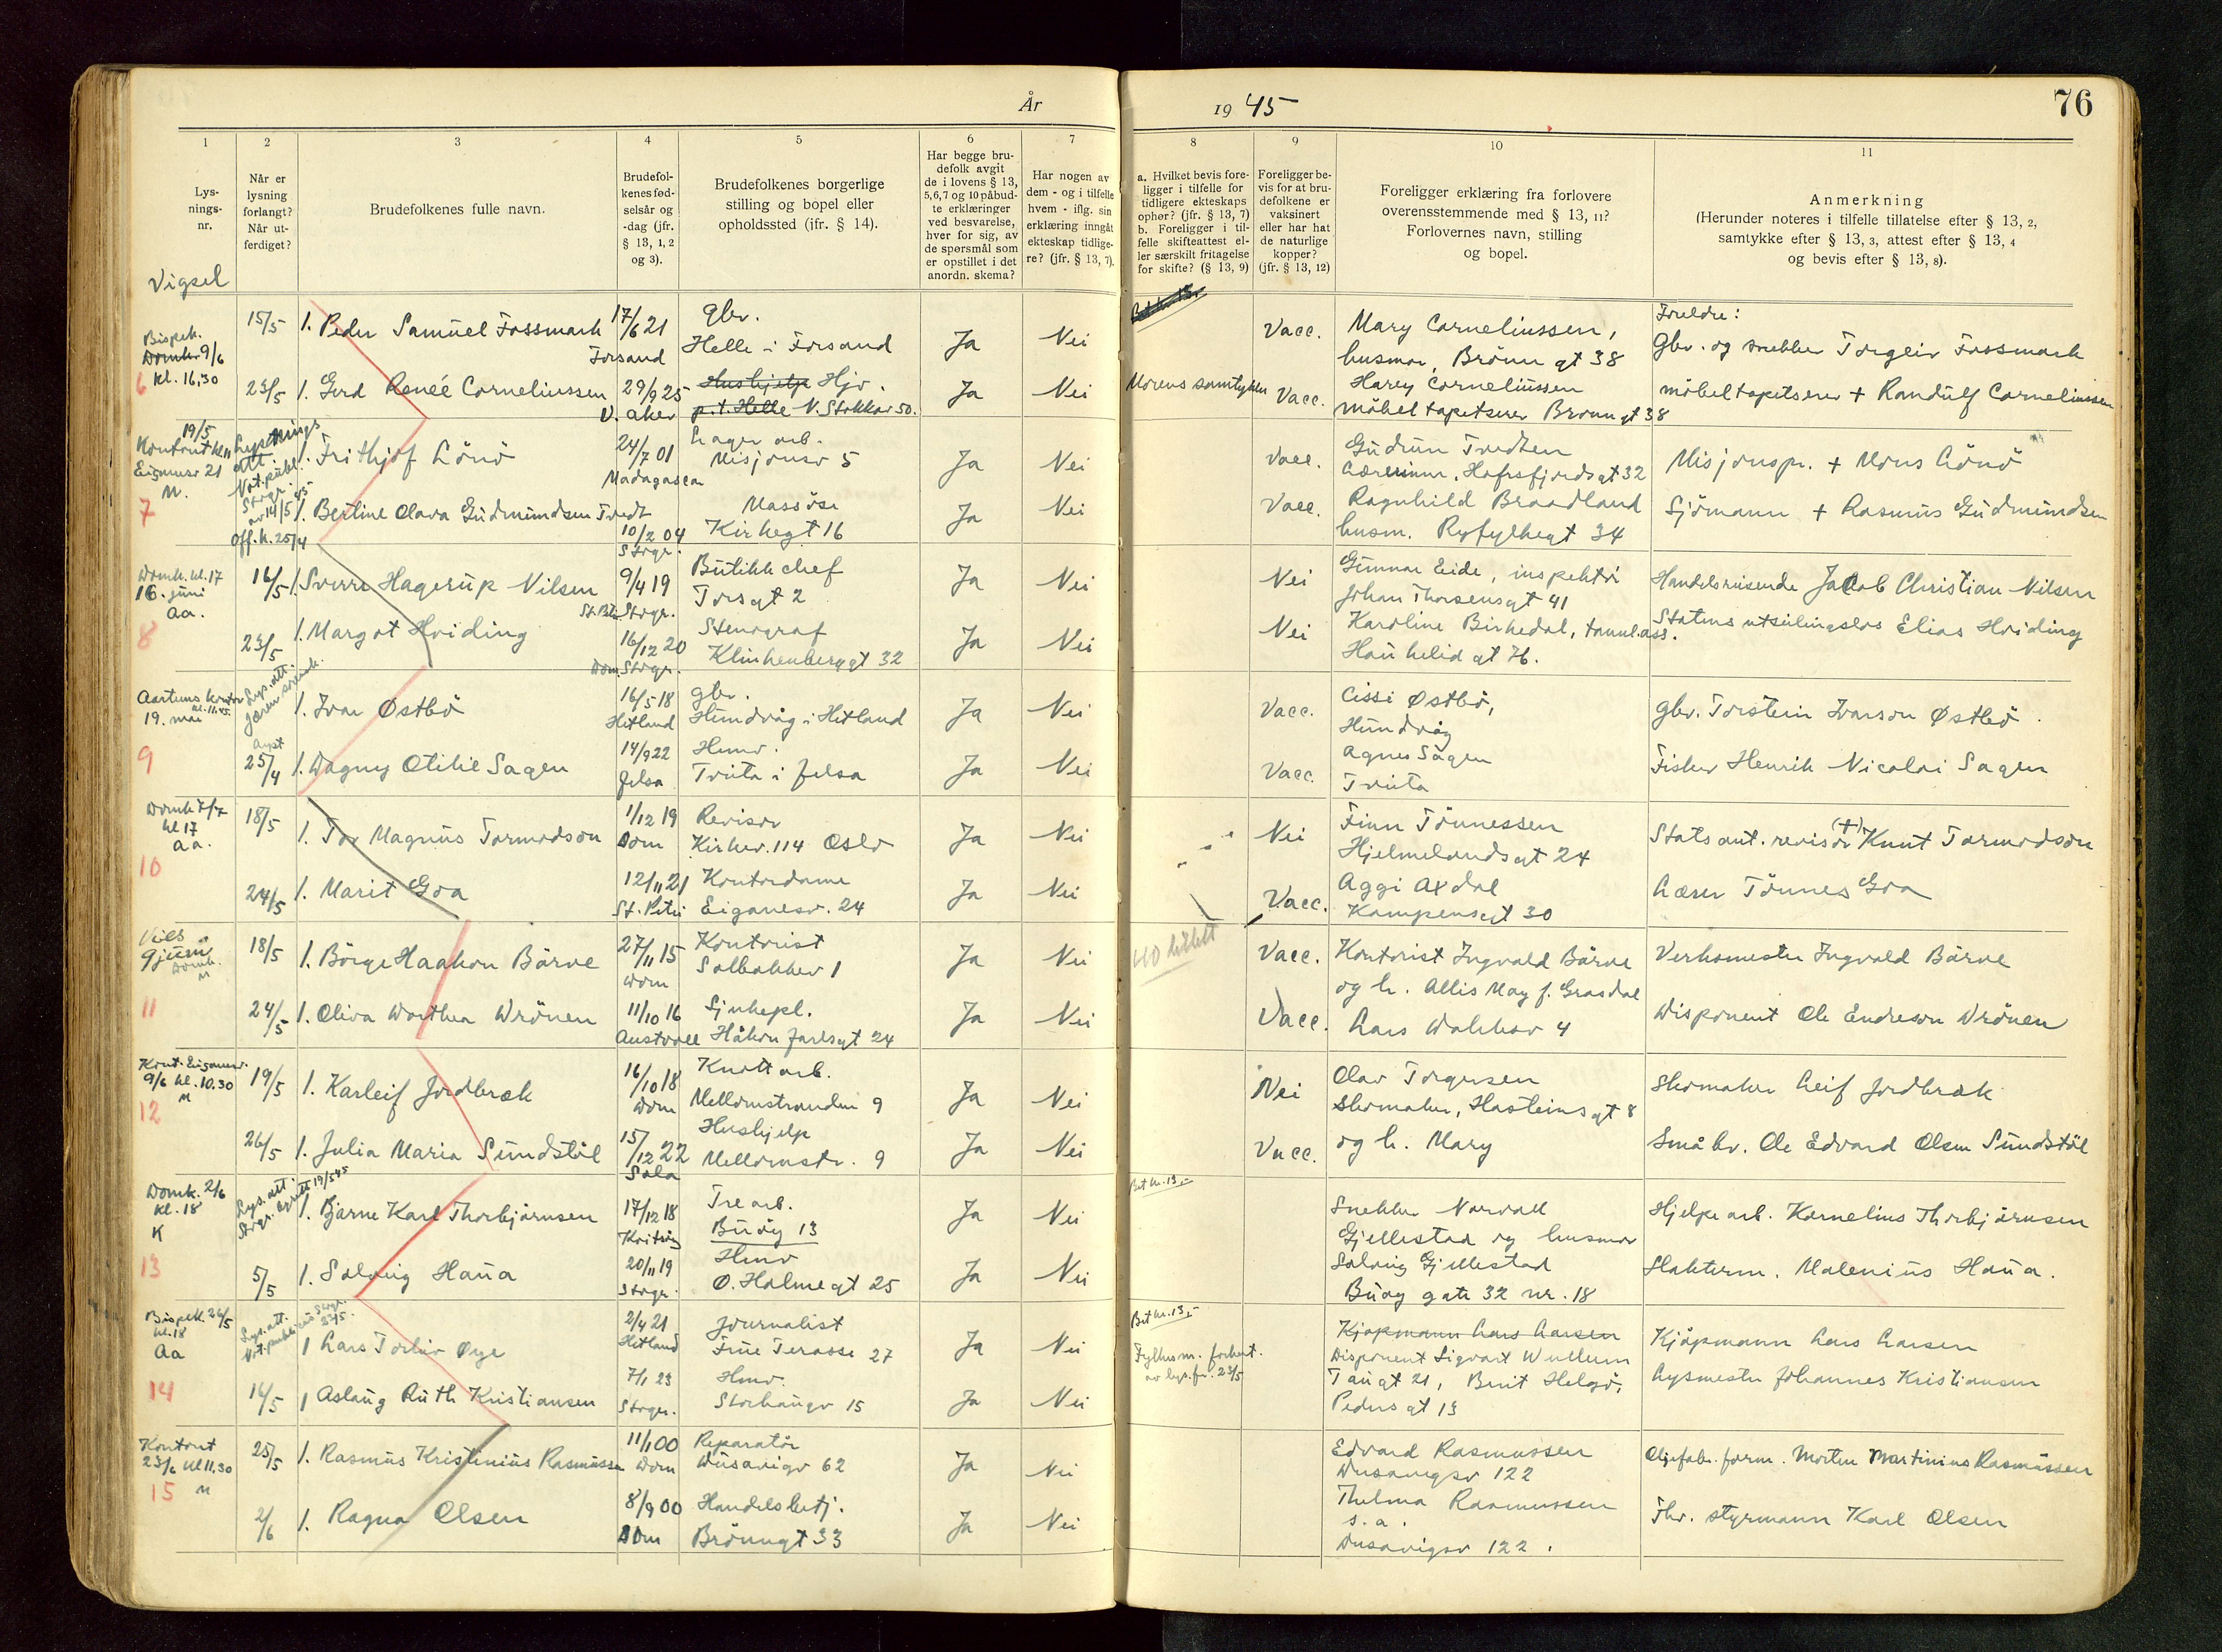 År
1945
76
1
2
3
4
5
6
7
8
9
10
11
Lys-
nings-
nr.
Vigsel
Når er
lysning
forlangt?
Når ut-
ferdiget?
Brudefolkenes fulle navn.
Brudefol-
kenes fød-
selsår og
-dag (jfr.
§ 13, 1, 2
og 3).
Brudefolkenes borgerlige
stilling og bopel eller
opholdssted (jfr. § 14).
Har begge bru-
defolk avgit
de i lovens § 13,
5, 6, 7 og 10 påbud-
te erklæringer
ved besvarelse,
hver for sig, av
de spørsmål som
er opstillet i det
anordn. skema?
Har nogen av
dem - og i tilfelle
hvem - iflg. sin
erklæring inngåt
ekteskap tidlige-
re? (jfr. § 13, 7).
a. Hvilket bevis fore-
ligger i tilfelle for
tidligere ekteskaps
ophør? (jfr. § 13, 7)
b. Foreligger i til-
felle skifteattest el-
ler særskilt fritagelse
for skifte? (§ 13, 9)
Foreligger be-
vis for at bru-
defolkene er
vaksinert
eller har hat
de naturlige
kopper?
(jfr. § 13, 12)
Foreligger erklæring fra forlovere
overensstemmende med § 13, 11?
Forlovernes navn, stilling
og bopel.
Anmerkning
(Herunder noteres i tilfelle tillatelse efter § 13, 2,
samtykke efter § 13, 3, attest efter § 13, 4
og bevis efter § 13, 8).
Bispek.
Domk 9/6
kl. 16,30
6
15/5 1. Peder Samuel Fossmark 17/6 21 Forsand
gbr.
Helle i Forsand Ja Nei Vacc.
Mary Corneliussen,
husmor, Brönngt 38
Foreldre:
Gbr. og snekker Torgeir Fossmark
23/5 1. Gerd Reneé Corneliussen 29/9 25 V. Aker
Hushjelp Hjv.
p.t. Helle N. Stokkav 50. Ja Nei Morens samtykke Vacc.
Harry Corneliussen
möbeltapetserer Brönngt 38
möbeltapetserer + Randulf Corneliussen
19/5
Kontoret kl 11
Eiganesv 21
M.
7
Lysnings
att.
Not. publ.
Stvgr.
av 14/5 45
1. Frithjof Lönö 24/7 01 Madagascar
Lager arb.
Misjonsv 5 Ja Nei Vacc.
Gudrun Tvedten
Lærerinne, Hafrsfjordsgt 32
Misjonspr. + Mons Lönö
Off. k. 25/4
1. Bertine Olava Gudmundsen Tvedt 10/2 04 Stvgr.
Massöse
Kirkegt 16 Ja Nei Vacc.
Ragnhild Braadland
husm. Ryfylkegt 34
Sjömann + Rasmus Gudmundsen
Domk. kl. 17
16. juni
Aa.
8
16/5 1. Sverre Hagerup Nilsen 9/4 19 St. Petri Stvgr.
Butikkchef
Torsgt 2 Ja Nei Nei
Gunnar Eide, inspektör
Johan Thorsensgt 41
Handelsreisende Jacob Christian Nilsen
23/5 1. Margot Hviding 16/12 20 Dom. Stvgr.
Stenograf
Klinkenberggt 32 Ja Nei Nei
Karoline Birkedal, tannl.ass.
Haukelidgt 76.
Statens utsiilingslos Elias Hviding
Aartuns kontor
kl. 11.45.
19. mai
9
Lys. att.
Jæren sorensk.
1. Ivar Østbö 16/5 18 Hetland
gbr.
Hundvåg i Hetland Ja Nei Vacc.
Cissi Østbö,
Hundvåg
gbr. Torstein Ivarson Østbö.
25/4 1. Dagny Otilie Sagen 14/9 22 Jelsa
Hmv.
Tviita i Jelsa Ja Nei Vacc.
Agnes Sagen
Tviita
Fisker Henrik Nicolai Sagen
Domk 7/7
kl 17
Aa.
10
18/5 1. Tor Magnus Tormodson 1/12 19 Dom
Revisor
Kirkev. 114 Oslo Ja Nei Nei
Finn Tönnessen
Hjelmelandsgt 24
Stats aut. revisor (+) Knut Tormodson
24/5 1. Marit Goa 12/11 21 St. Petri
Kontordame
Eiganesv. 24 Ja Nei Vacc.
Aggi Axdal
Kampensgt 30
Lærer Tönnes Goa
9 juni
Domk.
M
11
18/5 1. Börge Haakon Börve 27/11 15 Dom
Kontorist
Solbakkev 1 Ja Nei Vacc.
Kontorist Ingvald Börve
og h. Allis May f. Grasdal
Verksmester Ingvald Börve
24/5 1. Oliva Dorthea Drönen 11/10 16 Austvoll
Sjukepl.
Håkon Jarlsgt 24 Ja Nei Vacc.
Lars Dahle 4
Disponent Ole Endreson Drönen
Kont. Eiganesv.
9/6 kl. 10.30
M
12
19/5 1. Karleif Jordbræk 16/10 18 Dom
Knott arb.
Mellomstranden 9 Ja Nei Nei
Olav Torgersen
Skomaker, Hasteinsgt 8
Skomaker Leif Jordbræk
26/5 1. Julia Maria Sundstöl 15/12 22 Sola
Hushjelp
Mellomstr. 9 Ja Nei Vacc.
og h. Mary
Småbr. Ole Edvard Olsen Sundstöl
Domk. 2/6
kl. 18
K
13
Lys. att.
Stvgr. 19/5 45
1. Bjarne Karl Thorbjörnsen 17/12 18 Kvitsöy
Tre arb.
Buöy 13 Ja Nei Bet kr. 13,-
Snekker Norvall
Gjellestad og husmor
Hjelpearb. Kornelius Thorbjörnsen
5/5 1. Solveig Haua 20/11 19 Stvgr.
Hmv
Ø. Holmegt 25 Ja Nei
Solveig Gjellestad
Buöy gate 32 nr. 18
Slakterm. Malenius Haua.
Bispek. 26/5
kl. 18
Aa
14
Lys. att.
Not. publicus Stvgr. 23/5.
1 Lars Torleiv Øye 2/4 21 Hetland
Journalist
Frue Terasse 27 Ja Nei Bet kr. 13,-
Kjøpmann Lars Larsen
Disponent Sigvart Wullum
Kjöpmann Lars Larsen
14/5 1 Aslaug Ruth Kristiansen 7/1 23 Stvgr.
Hmv.
Storhaugv 15 Ja Nei
Fylkesm. forkort.
av lys.fr. 23/5
Taugt 21, Berit Helgö,
Pedersgt 13
Lysmester Johannes Kristiansen
Kontoret
23/6 kl 11.30
15 M
25/5 1. Rasmus Kristinius Rasmussen 11/1 00 Dom
Reparatör
Dusavigv 62 Ja Nei
Edvard Rasmussen
Dusavigsv 122
Oljefabr. form. Morten Martinius Rasmussen
2/6 1. Ragna Olsen 8/9 00 Dom
Handelsbetj.
Brönngt 33 Ja Nei
Thelma Rasmussen
s. a.
Dusavigsv 122.
Fhv. styrmann Karl Olsen